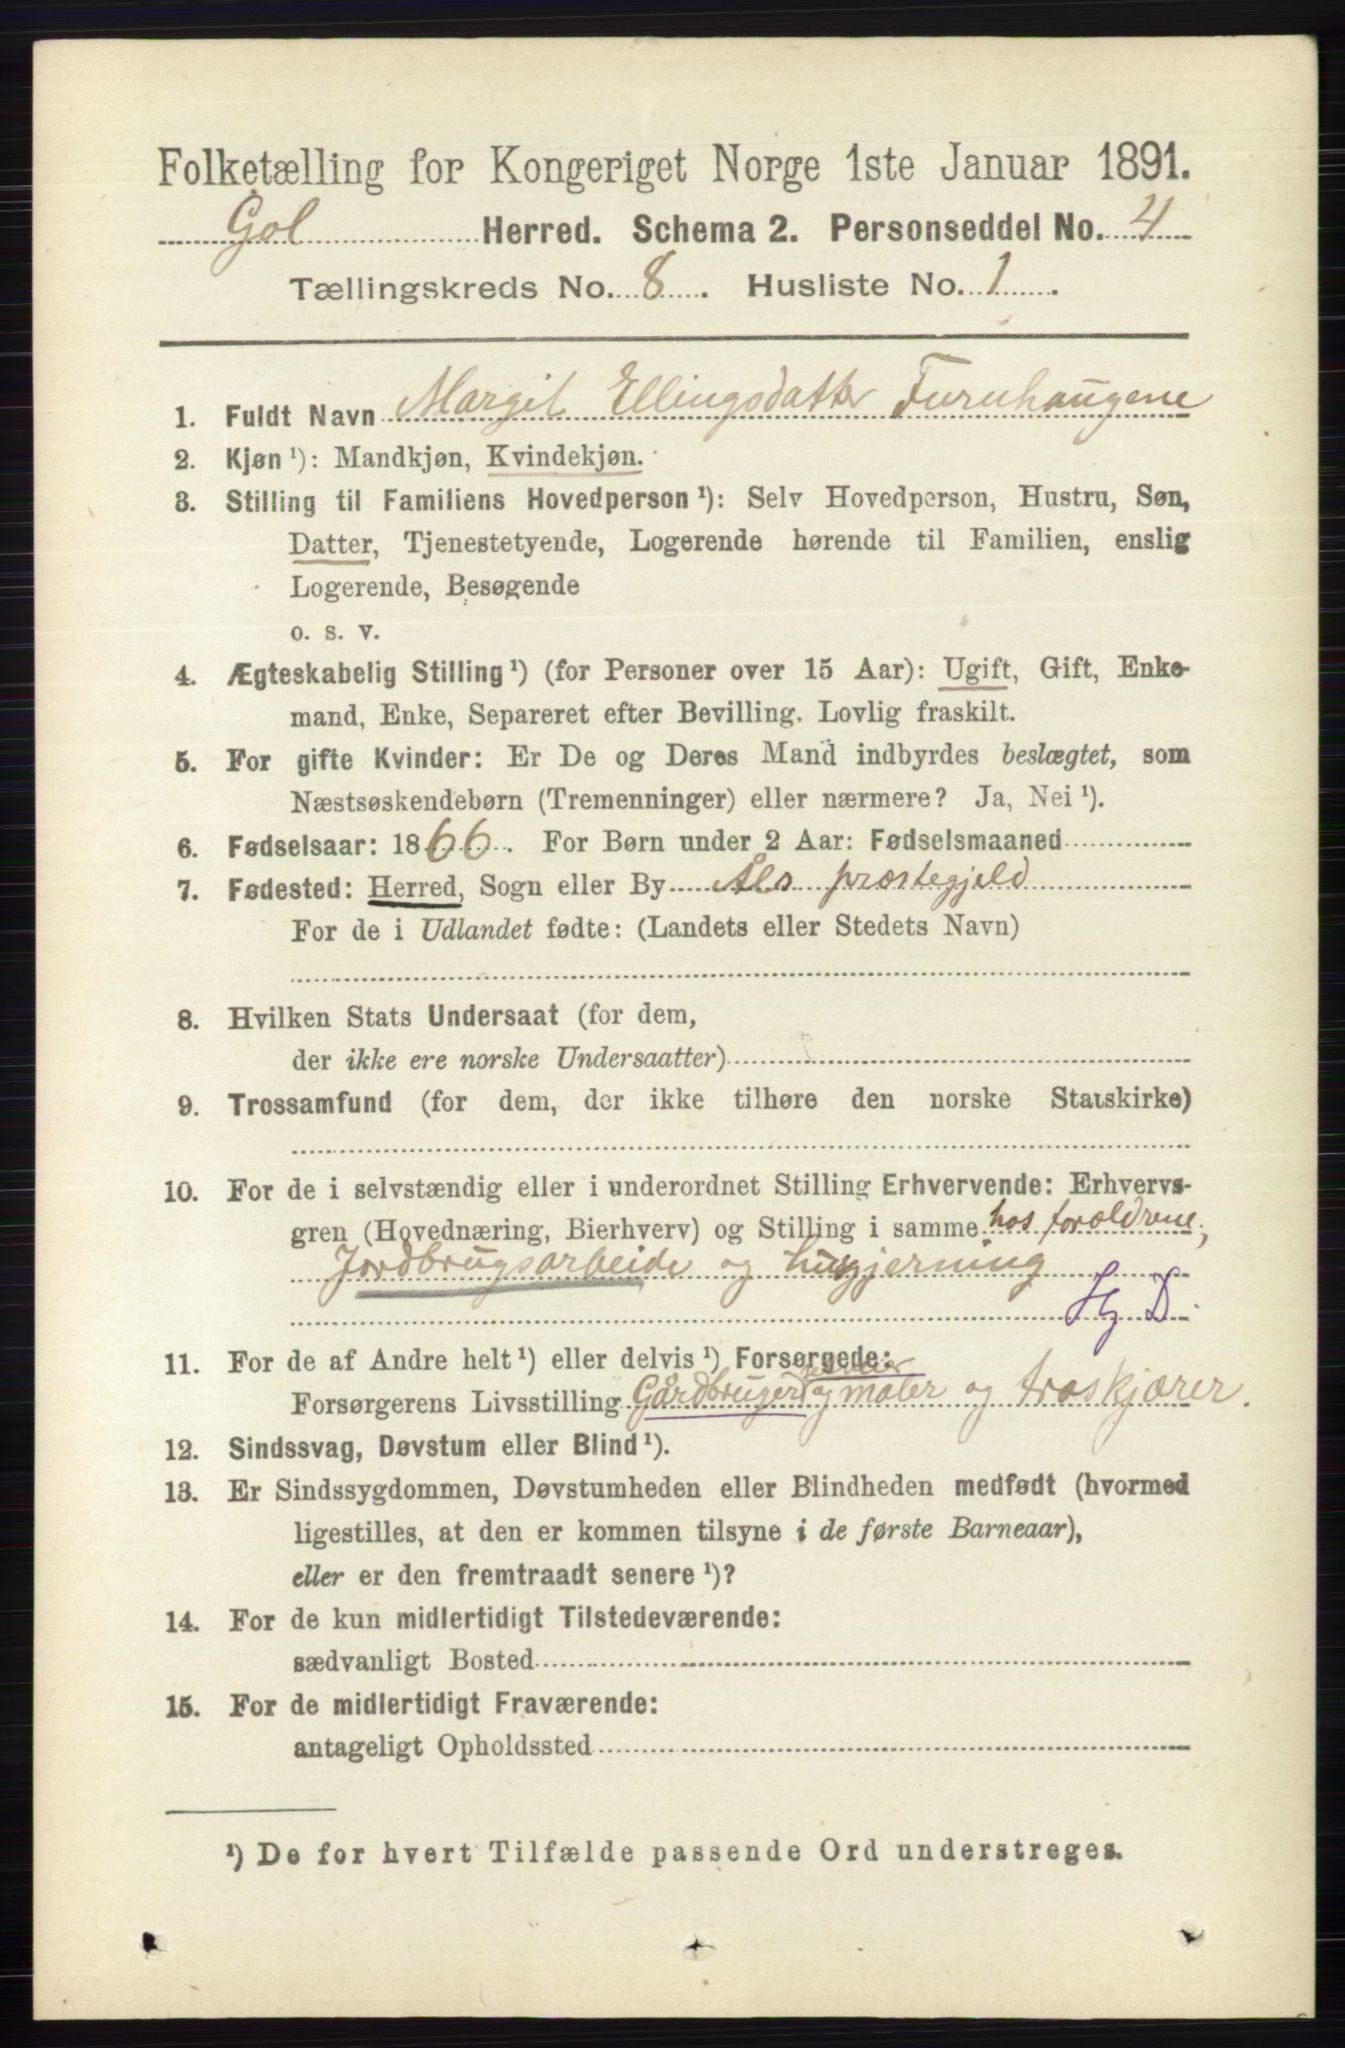 Folketælling for Kongeriget Norge 1ste Januar 1891.
Gol Herred. Schema 2. Personseddel No. 4
Tællingskreds No. 8. Husliste No. 1.
1. Fuldt Navn Margit Ellingsdatter Furuhaugene
2. Kjøn ¹): Mandkjøn, Kvindekjøn.
3. Stilling til Familiens Hovedperson ¹): Selv Hovedperson, Hustru, Søn,
Datter, Tjenestetyende, Logerende hørende til Familien, enslig
Logerende, Besøgende
o. s. v.
4. Ægteskabelig Stilling ¹) (for Personer over 15 Aar): Ugift, Gift, Enke-
mand, Enke, Separeret efter Bevilling. Lovlig fraskilt.
5. For gifte Kvinder: Er De og Deres Mand indbyrdes beslægtet, som
Næstsøskendebørn (Tremenninger) eller nærmere? Ja, Nei ¹).
6. Fødselsaar: 1866. For Børn under 2 Aar: Fødselsmaaned
7. Fødested: Herred, Sogn eller By Åls præstegjeld
For de i Udlandet fødte: (Landets eller Stedets Navn)
8. Hvilken Stats Undersaat (for dem,
der ikke ere norske Undersaatter)
9. Trossamfund (for dem, der ikke tilhøre den norske Statskirke)
10. For de i selvstændig eller i underordnet Stilling Erhvervende: Erhvervs-
gren (Hovednæring, Bierhverv) og Stilling i samme hos forældrene,
Jordbrugsarbeide og husgjerning
Hj D.
11. For de af Andre helt ¹) eller delvis ¹) Forsørgede:
Forsørgerens Livsstilling Gårdbruger og maler og træskjærer.
12. Sindssvag, Døvstum eller Blind ¹).
13. Er Sindssygdommen, Døvstumheden eller Blindheden medfødt (hvormed
ligestilles, at den er kommen tilsyne i de første Barneaar),
eller er den fremtraadt senere ¹)?
14. For de kun midlertidigt Tilstedeværende:
sædvanligt Bosted
15. For de midlertidigt Fraværende:
antageligt Opholdssted
¹) De for hvert Tilfælde passende Ord understreges.